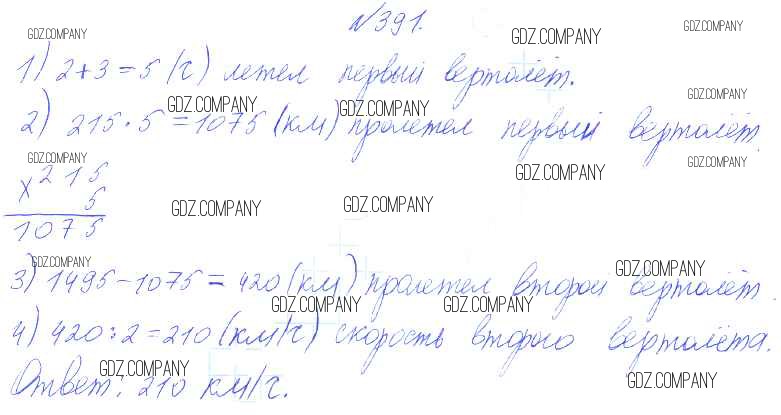 №391.
GDZ.COMPANY GDZ.COMPANY GDZ.COMPANY
1) 2+3=5 (ч) летел первый вертолёт.
GDZ.COMPANY GDZ.COMPANY GDZ.COMPANY
2) 215·5=1075 (км) пролетел первый вертолёт.
GDZ.COMPANY GDZ.COMPANY GDZ.COMPANY
×215
5
GDZ.COMPANY GDZ.COMPANY
1075
GDZ.COMPANY GDZ.COMPANY
3) 1495-1075=420 (км) пролетел второй вертолёт.
GDZ.COMPANY GDZ.COMPANY
4) 420:2=210 (км/ч) скорость второго вертолёта.
GDZ.COMPANY GDZ.COMPANY
Ответ: 210 км/ч.